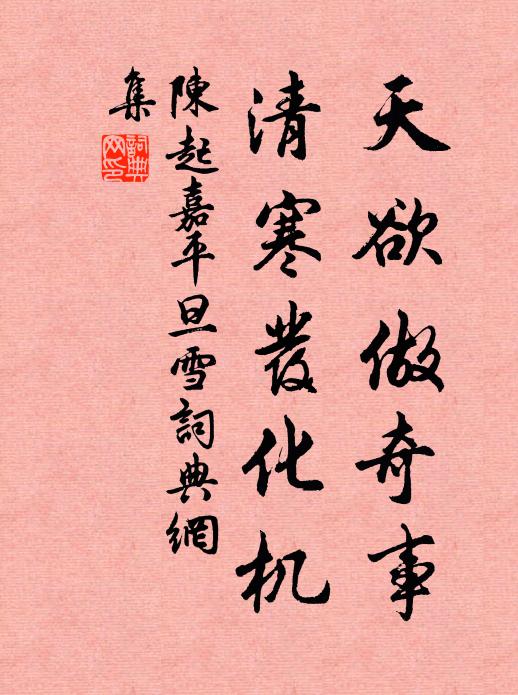 天欲做奇事
清寒發化机
陳起嘉平旦雪詞典網
集
詞典
网印